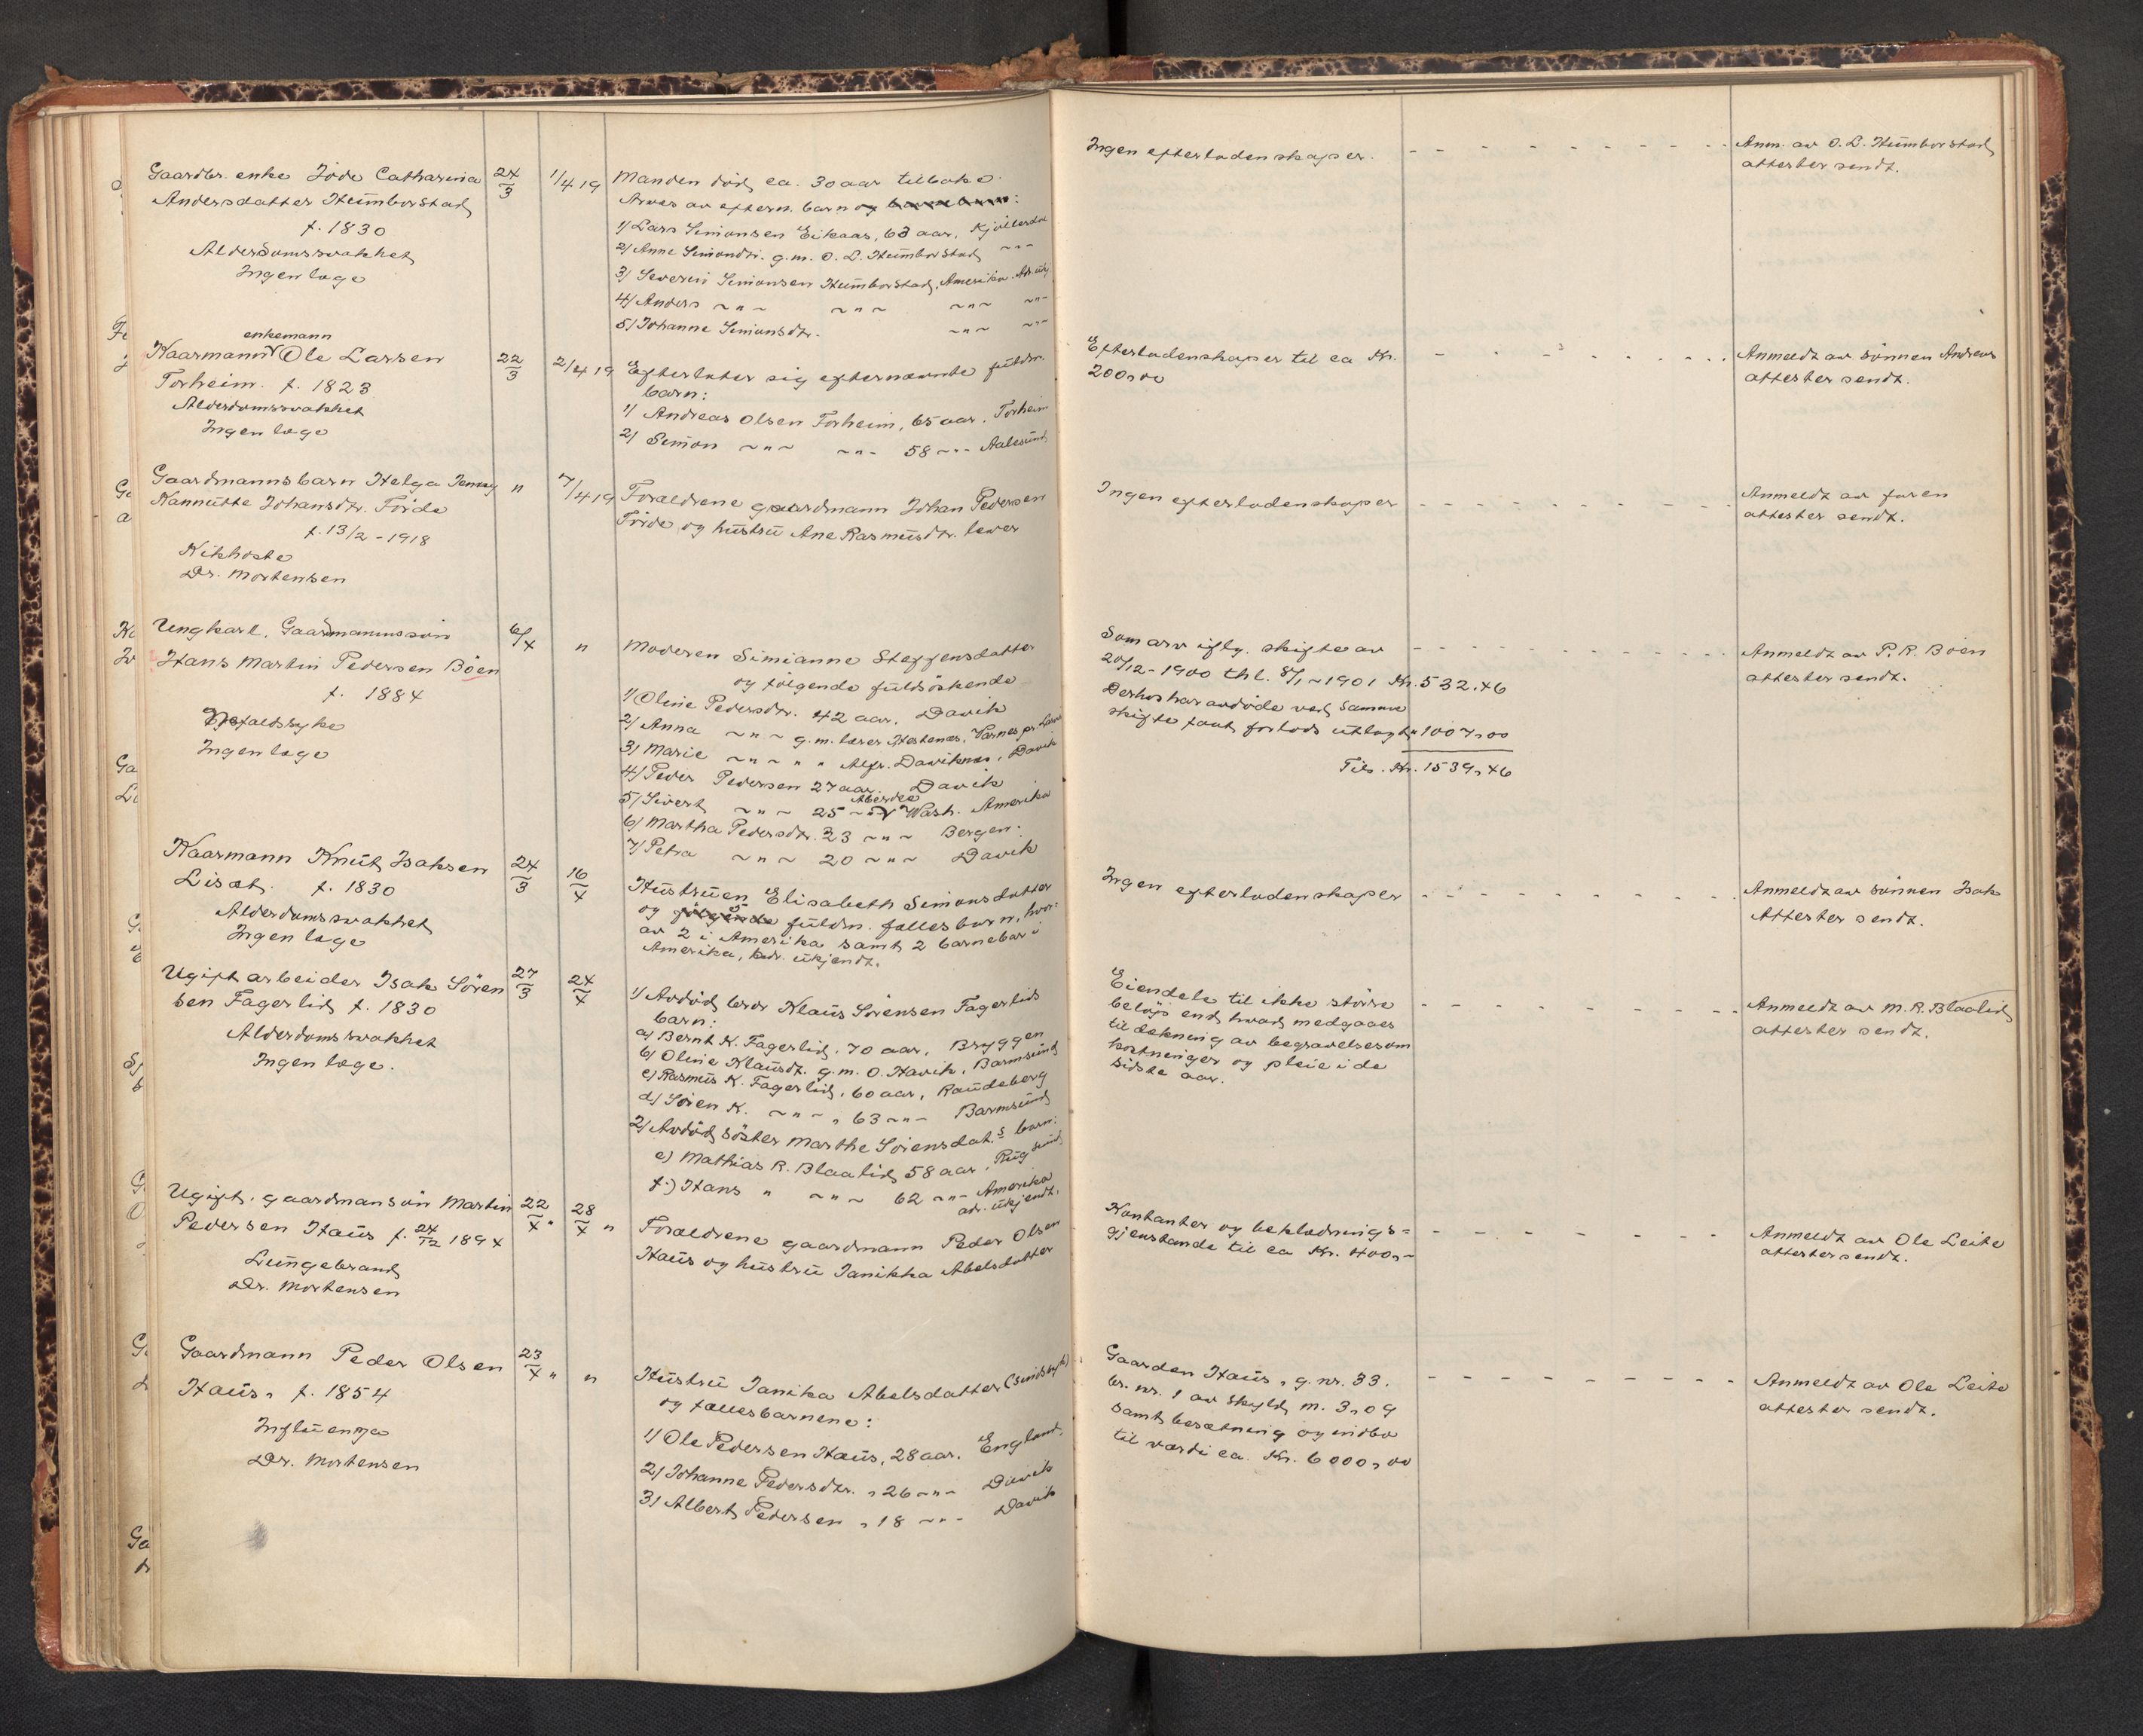 Gaardbr. enke Jóde Catharina
Andersdatter Humborstad
f. 1830
Alderdomssvakhet
Ingen læge
24/3
1/4 19
Manden död ca. 30 aar tilbake.
Arves av eftern. barn og barnebarn:
1/ Lars Simonsen Eikaas, 63 aar,
2/ Anne Simonsdtr. g.m. O. L. Humborstad ~"~
3/ Severin Simonsen Humborstad, Amerika. Adr. ukj.
4/ Anders ~"~ ~"~ ~"~ ~"~
5/ Johanne Simonsdtr. ~"~ ~"~
Ingen efterladenskaper.
Anm. av O. L. Humborstad
attester sendt.
enkemann
Kaarmann Ole Larsen
Torheim. f. 1823
Alderdomssvakhet
Ingen læge
22/3
2/4 19
Efterlater sig efternævnte fuldm.
barn:
1/ Andreas Olsen Torheim, 65 aar, Torheim
2/ Simon ~"~ ~"~ 58 ~"~ Aalesund
Efterladenskaper til ca Kr.
200,00
Anmeldt av sönnen Andreas
attester sendt.
Gaardmannsbarn Helga Jenny
Nannutte Johansdtr. Förde
f. 13/2 - 1918
Kikhoste
Dr. Mortensen
"
7/4 19
Forældrene gaardmann Johan Pedersen
Förde og hustru Ane Rasmusdtr. lever
Ingen efterladenskaper
Anmeldt av faren
attester sendt.
Ungkarl, Gaardmannssön
Hans Martin Pedersen Böen
f. 1884
Ingen læge
6/4
"
Moderen Simianne Steffensdatter
og fölgende fuldsöskende
1/ Oline Pedersdtr. 42 aar, Davik
2/ Anna ~"~ g.m. lærer Hestenes, Værnes pr.
3/ Marie ~"~ " " Alfr. Daviknes, Davik
4/ Peder Pedersen 27 aar. Davik
Aberdee
5/ Sivert ~"~ 25 ~"~ Wash. Amerika
6/ Martha Pedersdtr. 23 ~"~ Bergen.
7/ Petra ~"~ 20 ~"~ Davik
Som arv iflg. skifte av
20/12 - 1900 thl. 8/1 - 1901 Kr. 532,46
Derhos har avdöde ved samme
skifte faat forlods utlagt " 1007,00
Tils. Kr. 1539,46
Anmeldt av P. R. Böen
attester sendt.
Kaarmann Knut Isaksen
Lisæt. f. 1830
Alderdomssvakhet
Ingen læge
24/3
16/4
Hustruen Elisabeth Simonsdatter
og fölgende fuldm. fællesbarn, hvor-
av 2 i Amerika samt 2 barnebar i
Amerika, adr. ukjendt.
Ingen efterladenskaper
Anmeldt av sönnen Isak
Attester sendt.
Ugift arbeider Isak Sören
sen Fagerlid f. 1830
Alderdomssvakhet
Ingen læge.
27/3
24/4
1/ Avdöd bror Klaus Sörensen Fagerlids
barn:
a/ Bernt K. Fagerlid, 70 aar, Bryggen
b/ Oline Klausdt. g.m. O. Havik, Barmsund
c/ Rasmus K. Fagerlid, 60 aar, Raudeberg
d/ Sören K. ~"~ , 63 ~"~ Barmsund
2/ Avdöd söster Marthe Sörensdat.s barn:
e/ Mathias R. Blaalid, 58 aar, Rugsund
f.) Hans " ~"~ 62 ~"~ Amerika
adr. ukjendt.
Eiendele til ikke större
belöp end hvad medgaaes
til dekning av begravelsesom
kostninger og pleie i de
sidste aar.
Anmeldt av M. R. Blaalid
attester sendt.
Ugift. gaardmansön Martin
Pedersen Haus f. 24/12 1894
Lungebrand
Dr. Mortensen
22/4 "
28/4 "
Forældrene gaardmann Peder Olsen
Haus og hustru Janikka Abelsdatter
Kontanter og beklædnings=
gjenstande til ca Kr. 400,-
Anmeldt av Ole Leite
attester sendt.
Gaardmann Peder Olsen
Haus, f. 1854
Influenza
Dr. Mortensen
23/4 "
"
Hustru Janika Abelsdatter (sindssyk)
og fællesbarnene:
1/ Ole Pedersen Haus, 28 aar, England.
2/ Johanne Pedersdtr. , 26 ~"~ Davik
3/ Albert Pedersen , 18 ~"~ Davik
Gaarden Haus, g. nr. 33.
br. nr. 1 av skyld m. 3,09
samt besætning og indbo
til værdi ca. Kr. 6000,00
Anmeldt av Ole Leite
attester sendt.